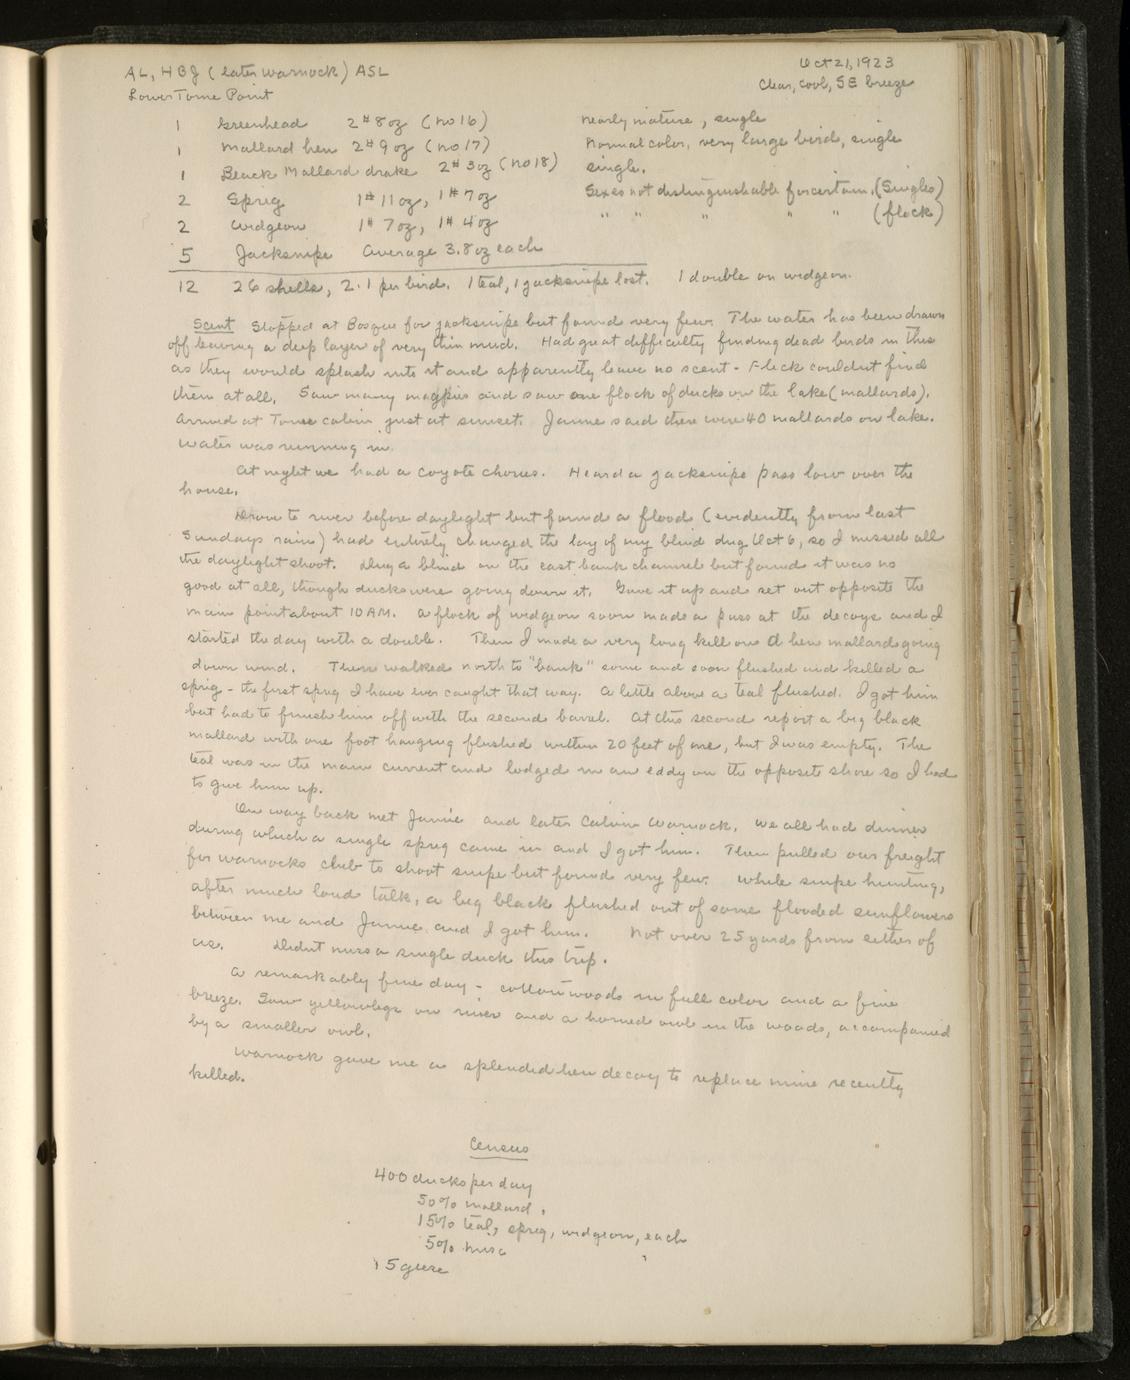 AL, HBJ (later Warnock) ASL
Oct 21, 1923
Lower Tome Point
Clear, cool, SE breeze
1 Greenhead 2# 8 oz (no 16) nearly mature, single
1 Mallard hen 2# 9 oz (no 17) normal color, very large bird, single
1 Black Mallard drake 2# 3 oz (no 18) single.
2 Sprig 1# 11 oz, 1# 7 oz Sexes not distinguishable for certain. (Singles)
2 Widgeon 1# 7 oz, 1# 4 oz " " " " " (flock)
5 Jacksnipe Average 3.8 oz each
12 26 shells, 2.1 per bird. 1 teal, 1 jacksnipe lost. 1 double on widgeon.
Scent Stopped at Bosque for jacksnipe but found very few. The water has been drawn
off leaving a deep layer of very thin mud. Had great difficulty finding dead birds in this
as they would splash into it and apparently leave no scent - Flick couldnt find
them at all. Saw many magpies and saw one flock of ducks on the lake (mallards).
Arrived at Tome cabin just at sunset. Jamie said there were 40 mallards on lake.
Water was running in.
At night we had a coyote chorus. Heard a jacksnipe pass low over the
house.
Drove to river before daylight but found a flood (evidently from last
Sundays rain) had entirely changed the lay of my blind dug Oct 6, so I missed all
the daylight shoot. Dug a blind on the east bank channel but found it was no
good at all, though ducks were going down it. Gave it up and set out opposite the
main point about 10 AM. A flock of widgeon soon made a pass at the decoys and I
started the day with a double. Then I made a very long kill on a hen mallard going
down wind. Then walked north to "bank" some and soon flushed and killed a
sprig - the first sprig I have ever caught that way. A little above a teal flushed. I got him
but had to finish him off with the second barrel. At this second report a big black
mallard with one foot hanging flushed within 20 feet of me, but I was empty. The
teal was in the main current and lodged in an eddy on the opposite shore so I had
to give him up.
On way back met Jamie and later Calvin Warnock. We all had dinner
during which a single sprig came in and I got him. Then pulled our freight
for Warnocks club to shoot snipe but found very few. While snipe hunting,
after much loud talk, a big black flushed out of some flooded sunflowers
between me and Jamie and I got him. Not over 25 yards from either of
us. Didnt miss a single duck this trip.
A remarkably fine day - cottonwoods in full color and a fine
breeze. Saw yellowlegs on river and a horned owl in the woods, accompanied
by a smaller owl.
Warnock gave me a splendid hen decoy to replace mine recently
killed.
Census
400 ducks per day
50% mallard,
15% teal, sprig, widgeon, each
5% misc
15 geese